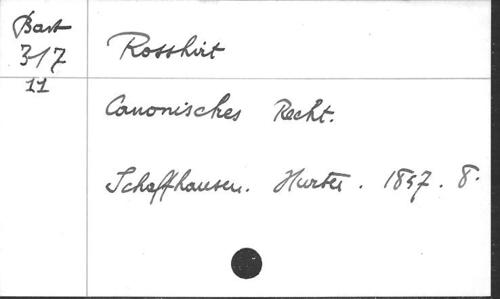 Bast
317
11
Rosshirt
Canonisches Recht.
Schaffhausen. Hurter. 1857. 8.